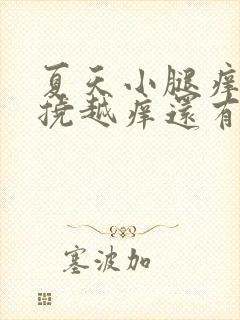 夏天小腿痒
挠越痒還有
塞波加